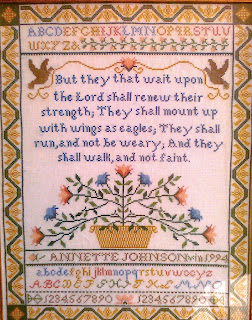 ABCDEFGHIJKLMNOPQRSTUV
WXYZ
But they that wait upon
the Lord shall renew their
strength; They shall mount up
with wings as eagles; They shall
run, and not be weary; And they
shall walk, and not faint.
ANNETTE JOHNSON in 1994
abcdefghijklmnopqrstuvwxyz
ABCDEFGHIJKLMNO
1234567890 1234567890